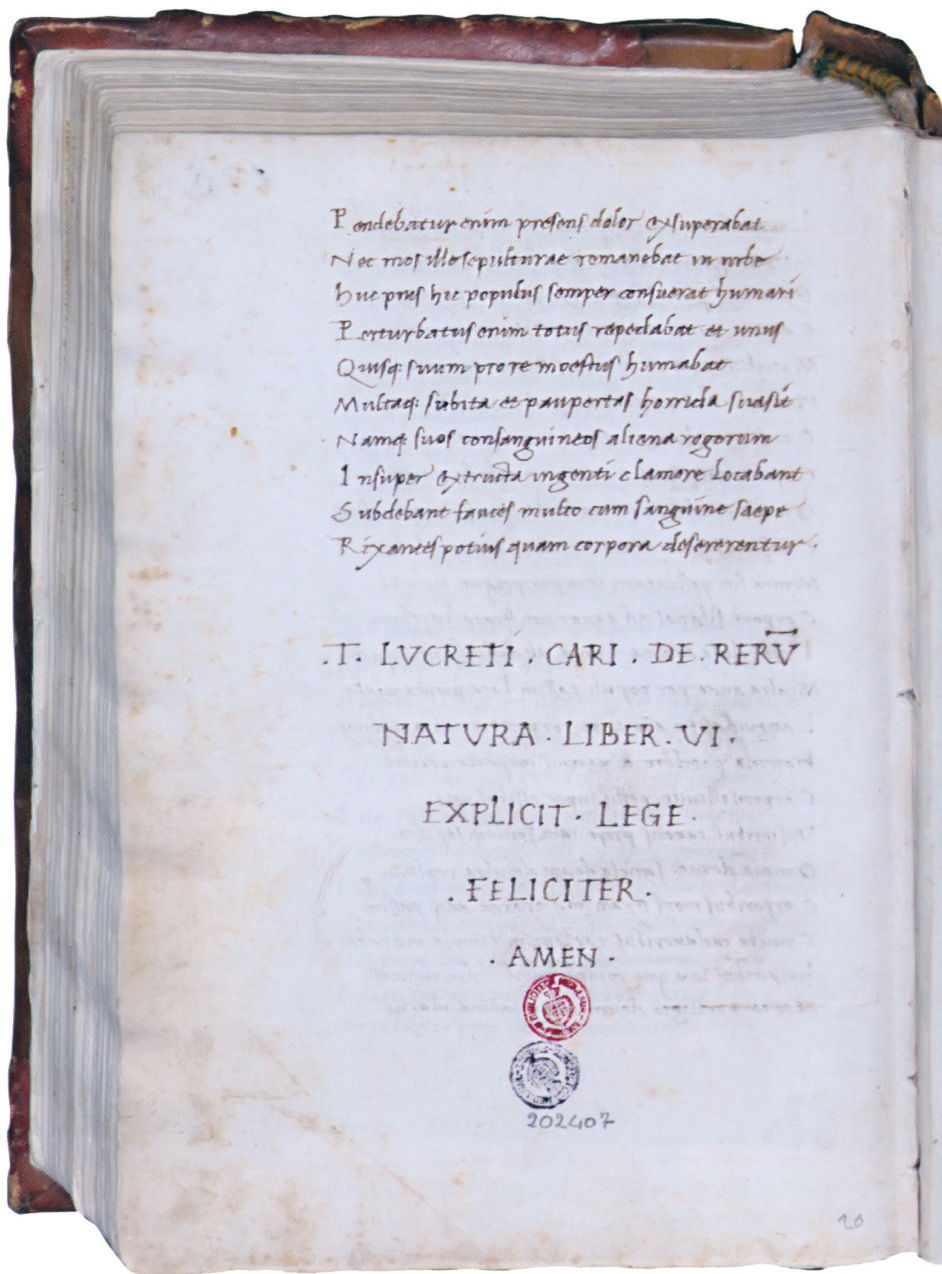 Pendebatur enim presens dolor exsuperabat
Nec mos ille sepulturae remanebat in urbe
Huc prius hic populus semper consuerat humari
Perturbatus enim totus repedabat et unus
Quisq; suum pro re moestus humabat
Multaq; subita et paupertas horrida suasit
Namq; suos consanguineos aliena rogorum
Insuper extructa ingenti clamore locabant
Subdebant fauces multo cum sanguine saepe
Rixantes potius quam corpora desererentur.
.T. LUCRETI . CARI . DE . RERŪ
NATURA . LIBER . VI .
EXPLICIT . LEGE .
. FELICITER .
. AMEN .
202407
20